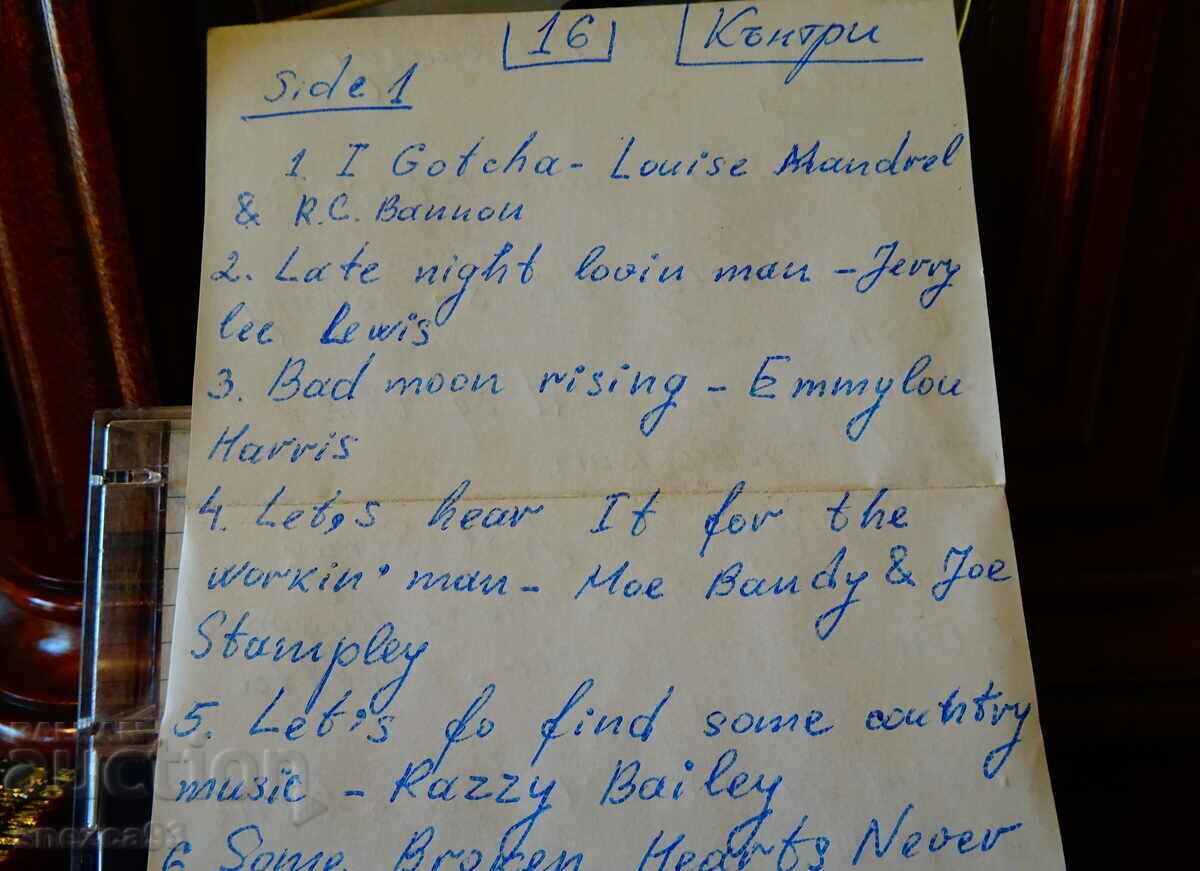 16 Кънтри
Side 1
1. I Gotcha - Louise Mandrel
& R.C. Bannon
2. Late night lovin man - Jerry
lee Lewis
3. Bad moon rising - Emmylou
Harris
4. Let,s hear It for the
workin' man - Moe Bandy & Joe
Stampley
5. Let's go find some country
music - Razzy Bailey
6 Some Broken Hearts Never
auction
snezca93